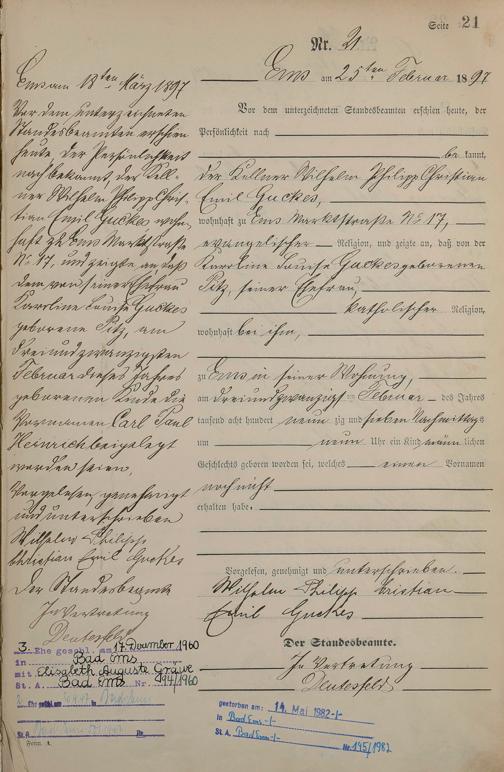 Seite 21
Nr. 21
Ems am 25ten Februar 1897
Vor dem unterzeichneten Standesbeamten erschien heute, der
Persönlichkeit nach
bekannt,
der Kellner Wilhelm Philipp Christian
Emil Guckes,
wohnhaft zu Ems Marktstraße No 17,
evangelischer Religion, und zeigte an, daß von der
Karoline Louise Guckes geborenen
Pitz, seiner Ehefrau,
katholischer Religion,
wohnhaft bei ihm,
zu Ems in seiner Wohnung,
am dreiundzwanzigsten Februar des Jahres
tausend acht hundert neunzig und sieben Nachmittags
um neun Uhr ein Kind männlichen
Geschlechts geboren worden sei, welches einen Vornamen
noch nicht
erhalten habe.
Vorgelesen, genehmigt und unterschrieben.
Wilhelm Philipp Cristian
Emil Guckes
Der Standesbeamte.
In Vertretung
Ems am 18ten März 1897
Vor dem unterzeichneten
Standesbeamten erschien
heute, der Persönlichkeit
nach bekannt, der Kell-
ner Wilhelm Philipp Chris-
tian Emil Guckes wohn-
haft zu Ems Marktstraße
No 17, und zeigte an, daß
dem von seiner Ehefrau
Karoline Louise Guckes
geborene Pitz, am
dreiundzwanzigsten
Februar dieses Jahres
geborenen Kinde die
Vornamen Carl Paul
Heinrich beigelegt
worden seien.
Vorgelesen, genehmigt
und unterschrieben
Wilhelm Philipp
Christian Emil Guckes
Der Standesbeamte
In Vertretung
3. Ehe geschl. am 17. Dezember 1960
in Bad Ems
mit Elisabeth Auguste Gräwe
St. A. Bad Ems Nr. 94/1960
Ehe geschl. am
in
St. A. Nr.
Form. A.
gestorben am: 14. Mai 1982 -/-
in Bad Ems -/-
St. A. Bad Ems -/-
Nr. 145/1982